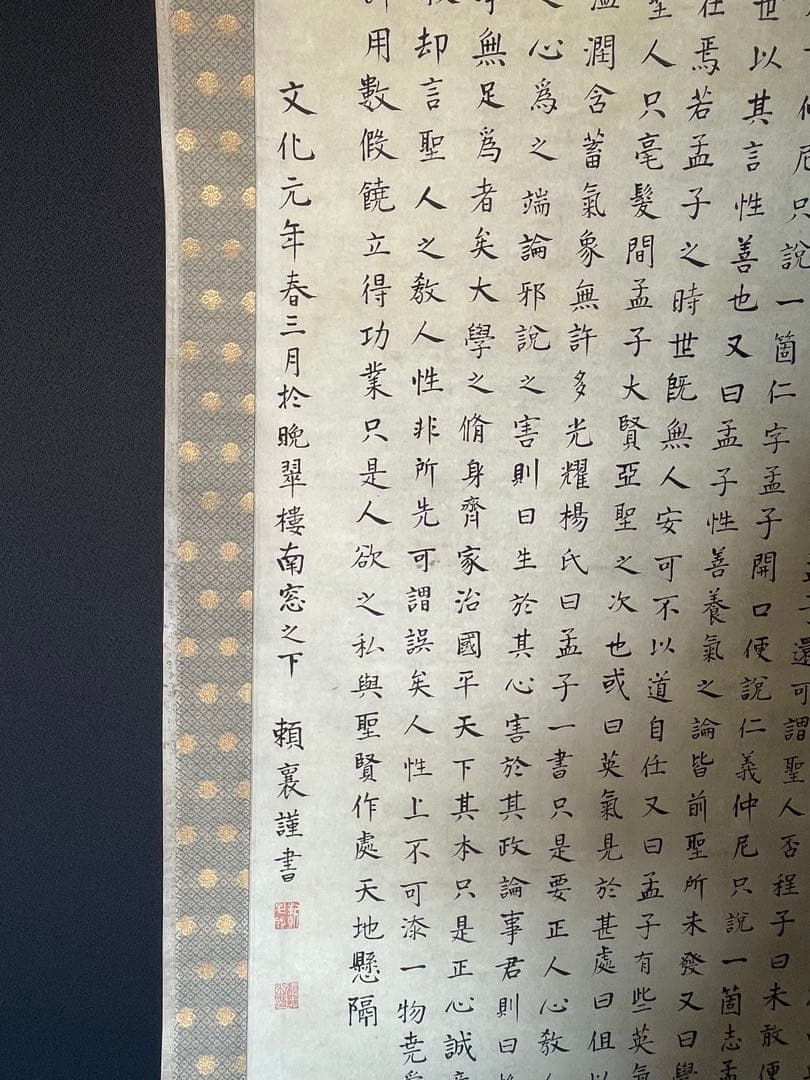 子還可謂聖人否程子曰未敢便
尼只說一箇仁字孟子開口便說仁義仲尼只說一箇志孟
世以其言性善也又曰孟子性善養氣之論皆前聖所未發又曰學
在焉若孟子之時世既無人安可不以道自任又曰孟子有些英氣
聖人只毫髮間孟子大賢亞聖之次也或曰英氣見於甚處曰但以
溫潤含蓄氣象無許多光耀楊氏曰孟子一書只是要正人心教人
之心爲之端論邪說之害則曰生於其心害於其政論事君則曰
無足爲者矣大學之脩身齊家治國平天下其本只是正心誠意
却言聖人之教人性非所先可謂誤矣人性上不可添一物堯
計用數假饒立得功業只是人欲之私與聖賢作處天地懸隔
文化元年春三月於晩翠樓南窓之下 頼襄謹書